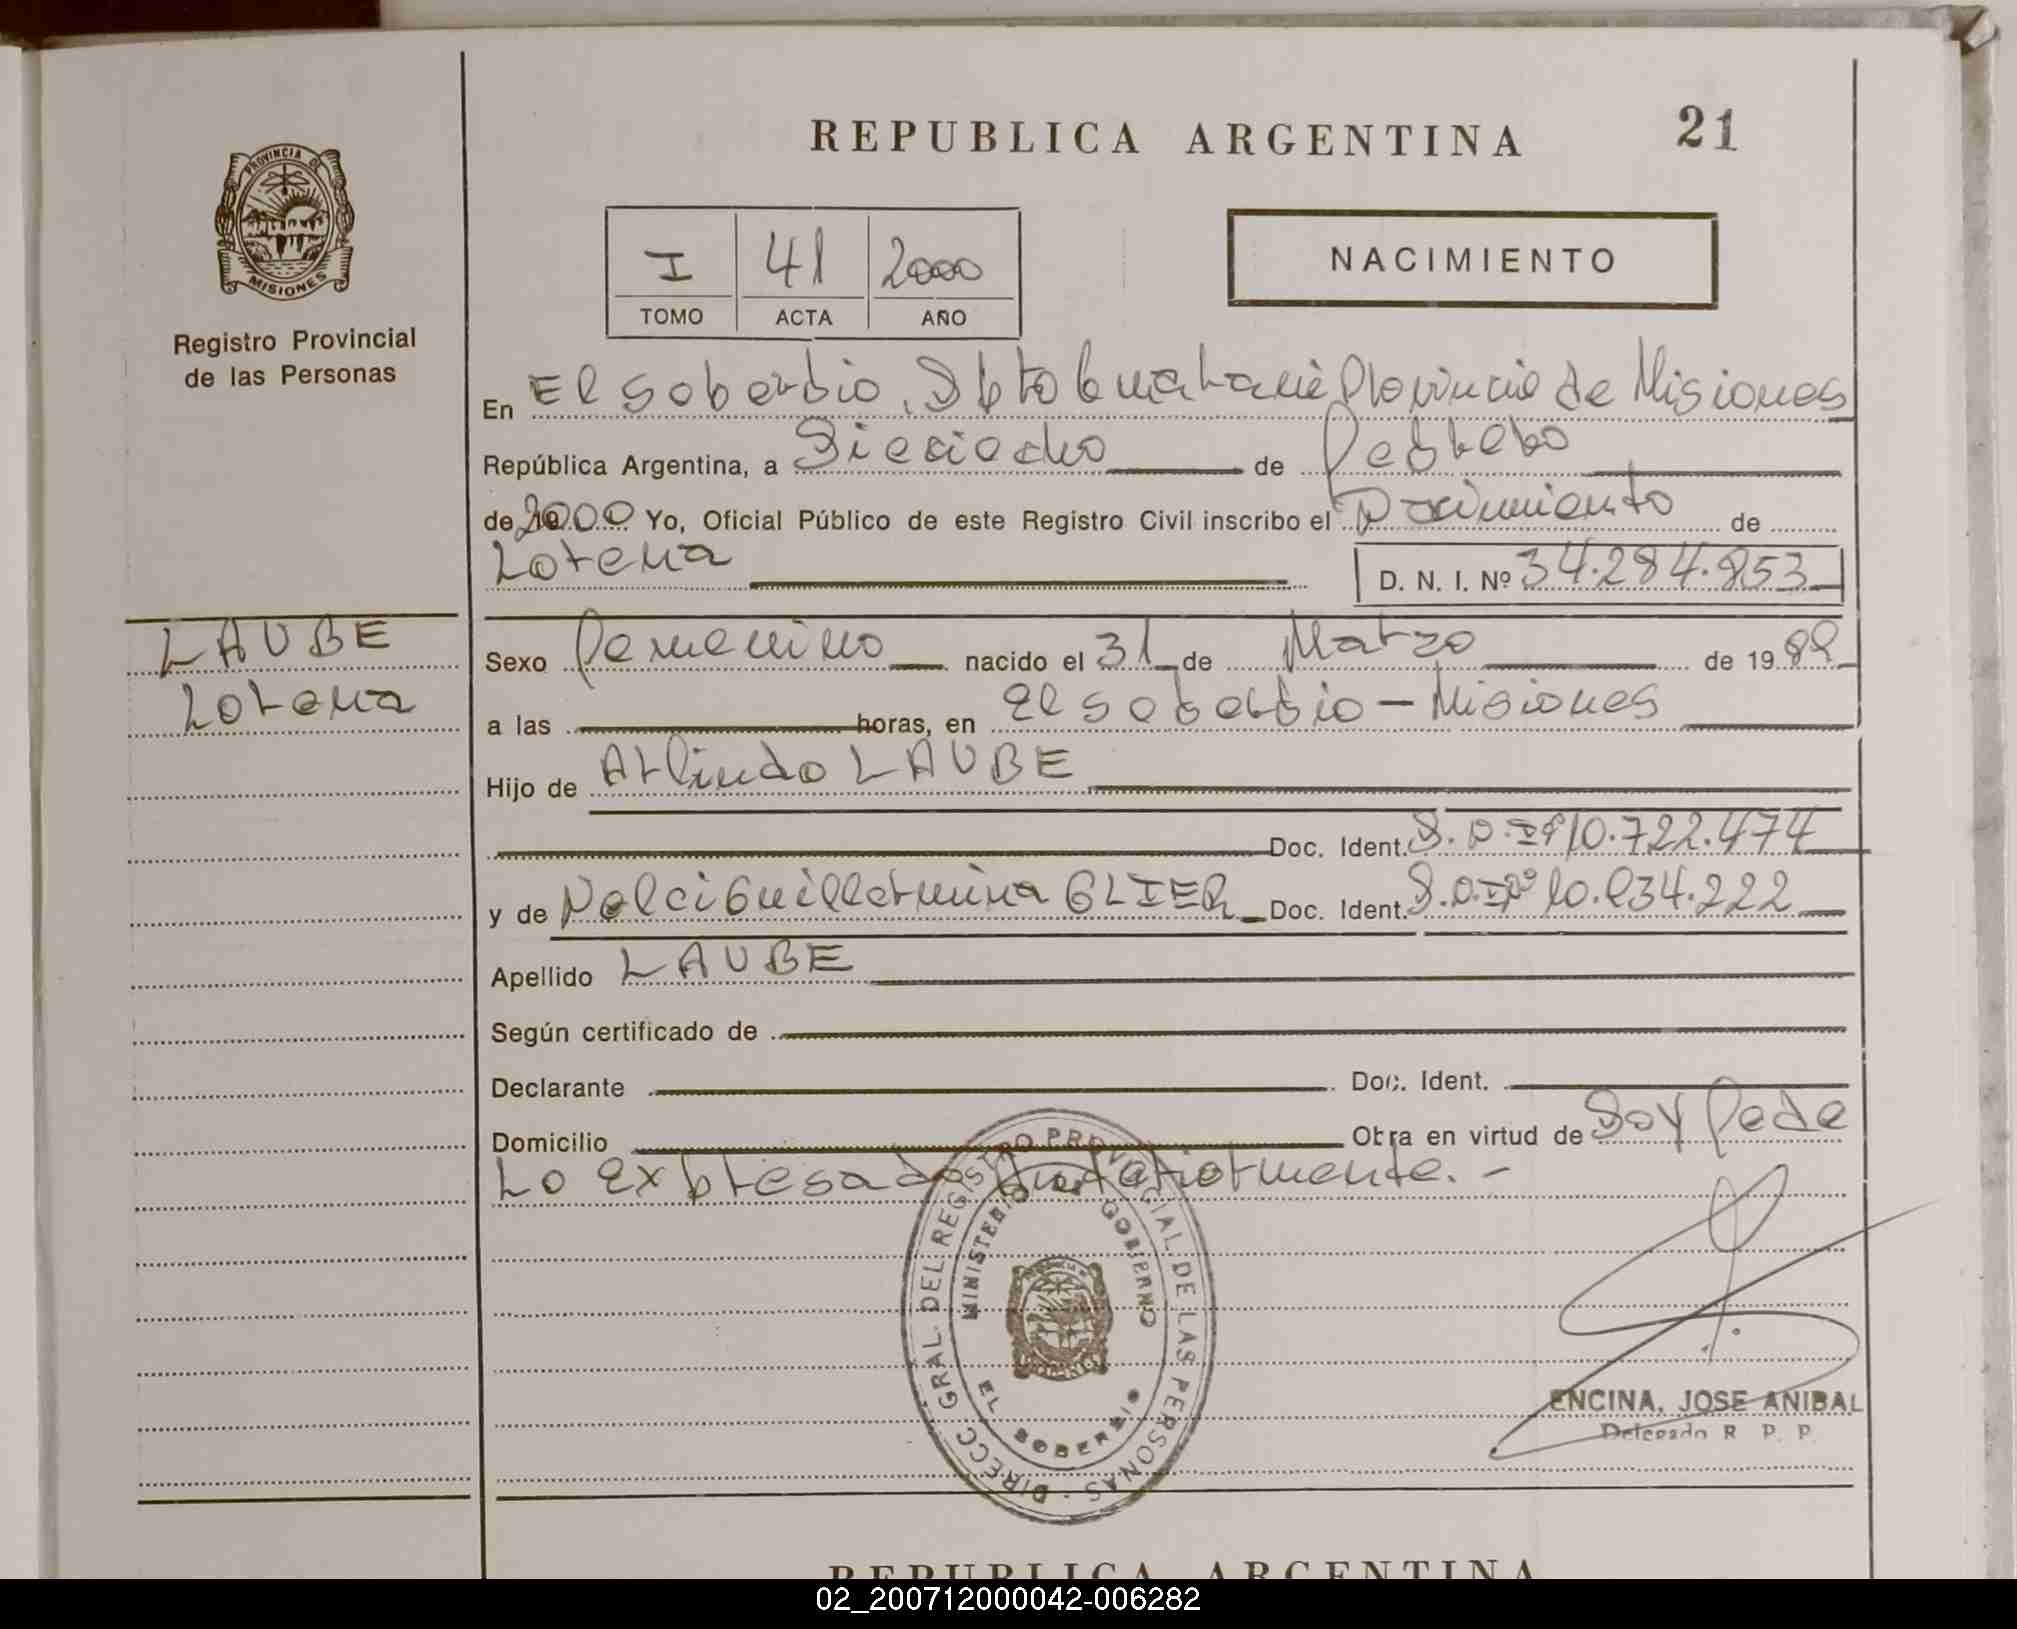 REPUBLICA ARGENTINA
21
PROVINCIA DE MISIONES
Registro Provincial
de las Personas
I 41 2000
TOMO ACTA AÑO
NACIMIENTO
En El Soberbio, Dpto Guaraní Provincia de Misiones
República Argentina, a Dieciocho de Febrero
de 2000 Yo, Oficial Público de este Registro Civil inscribo el Nacimiento de
Lorena D. N. I. Nº 34.284.853
LAUBE
Lorena
Sexo Femenino nacido el 31 de Marzo de 19
a las horas, en El Soberbio - Misiones
Hijo de Arlindo LAUBE
Doc. Ident. D.N.I Nº 10.722.474
y de Nelci Guillermina GLIER Doc. Ident. D.N.I Nº
Apellido LAUBE
Según certificado de
Declarante Doc. Ident.
Domicilio Otra en virtud de Doy Fe de
Lo expresado anteriormente.-
DIRECC. GRAL. DEL REGISTRO PROVINCIAL DE LAS PERSONAS
MINISTERIO DE GOBIERNO
EL SOBERBIO
ENCINA, JOSE ANIBAL
Delegado R. P. P.
REPUBLICA ARGENTINA
02_200712000042-006282